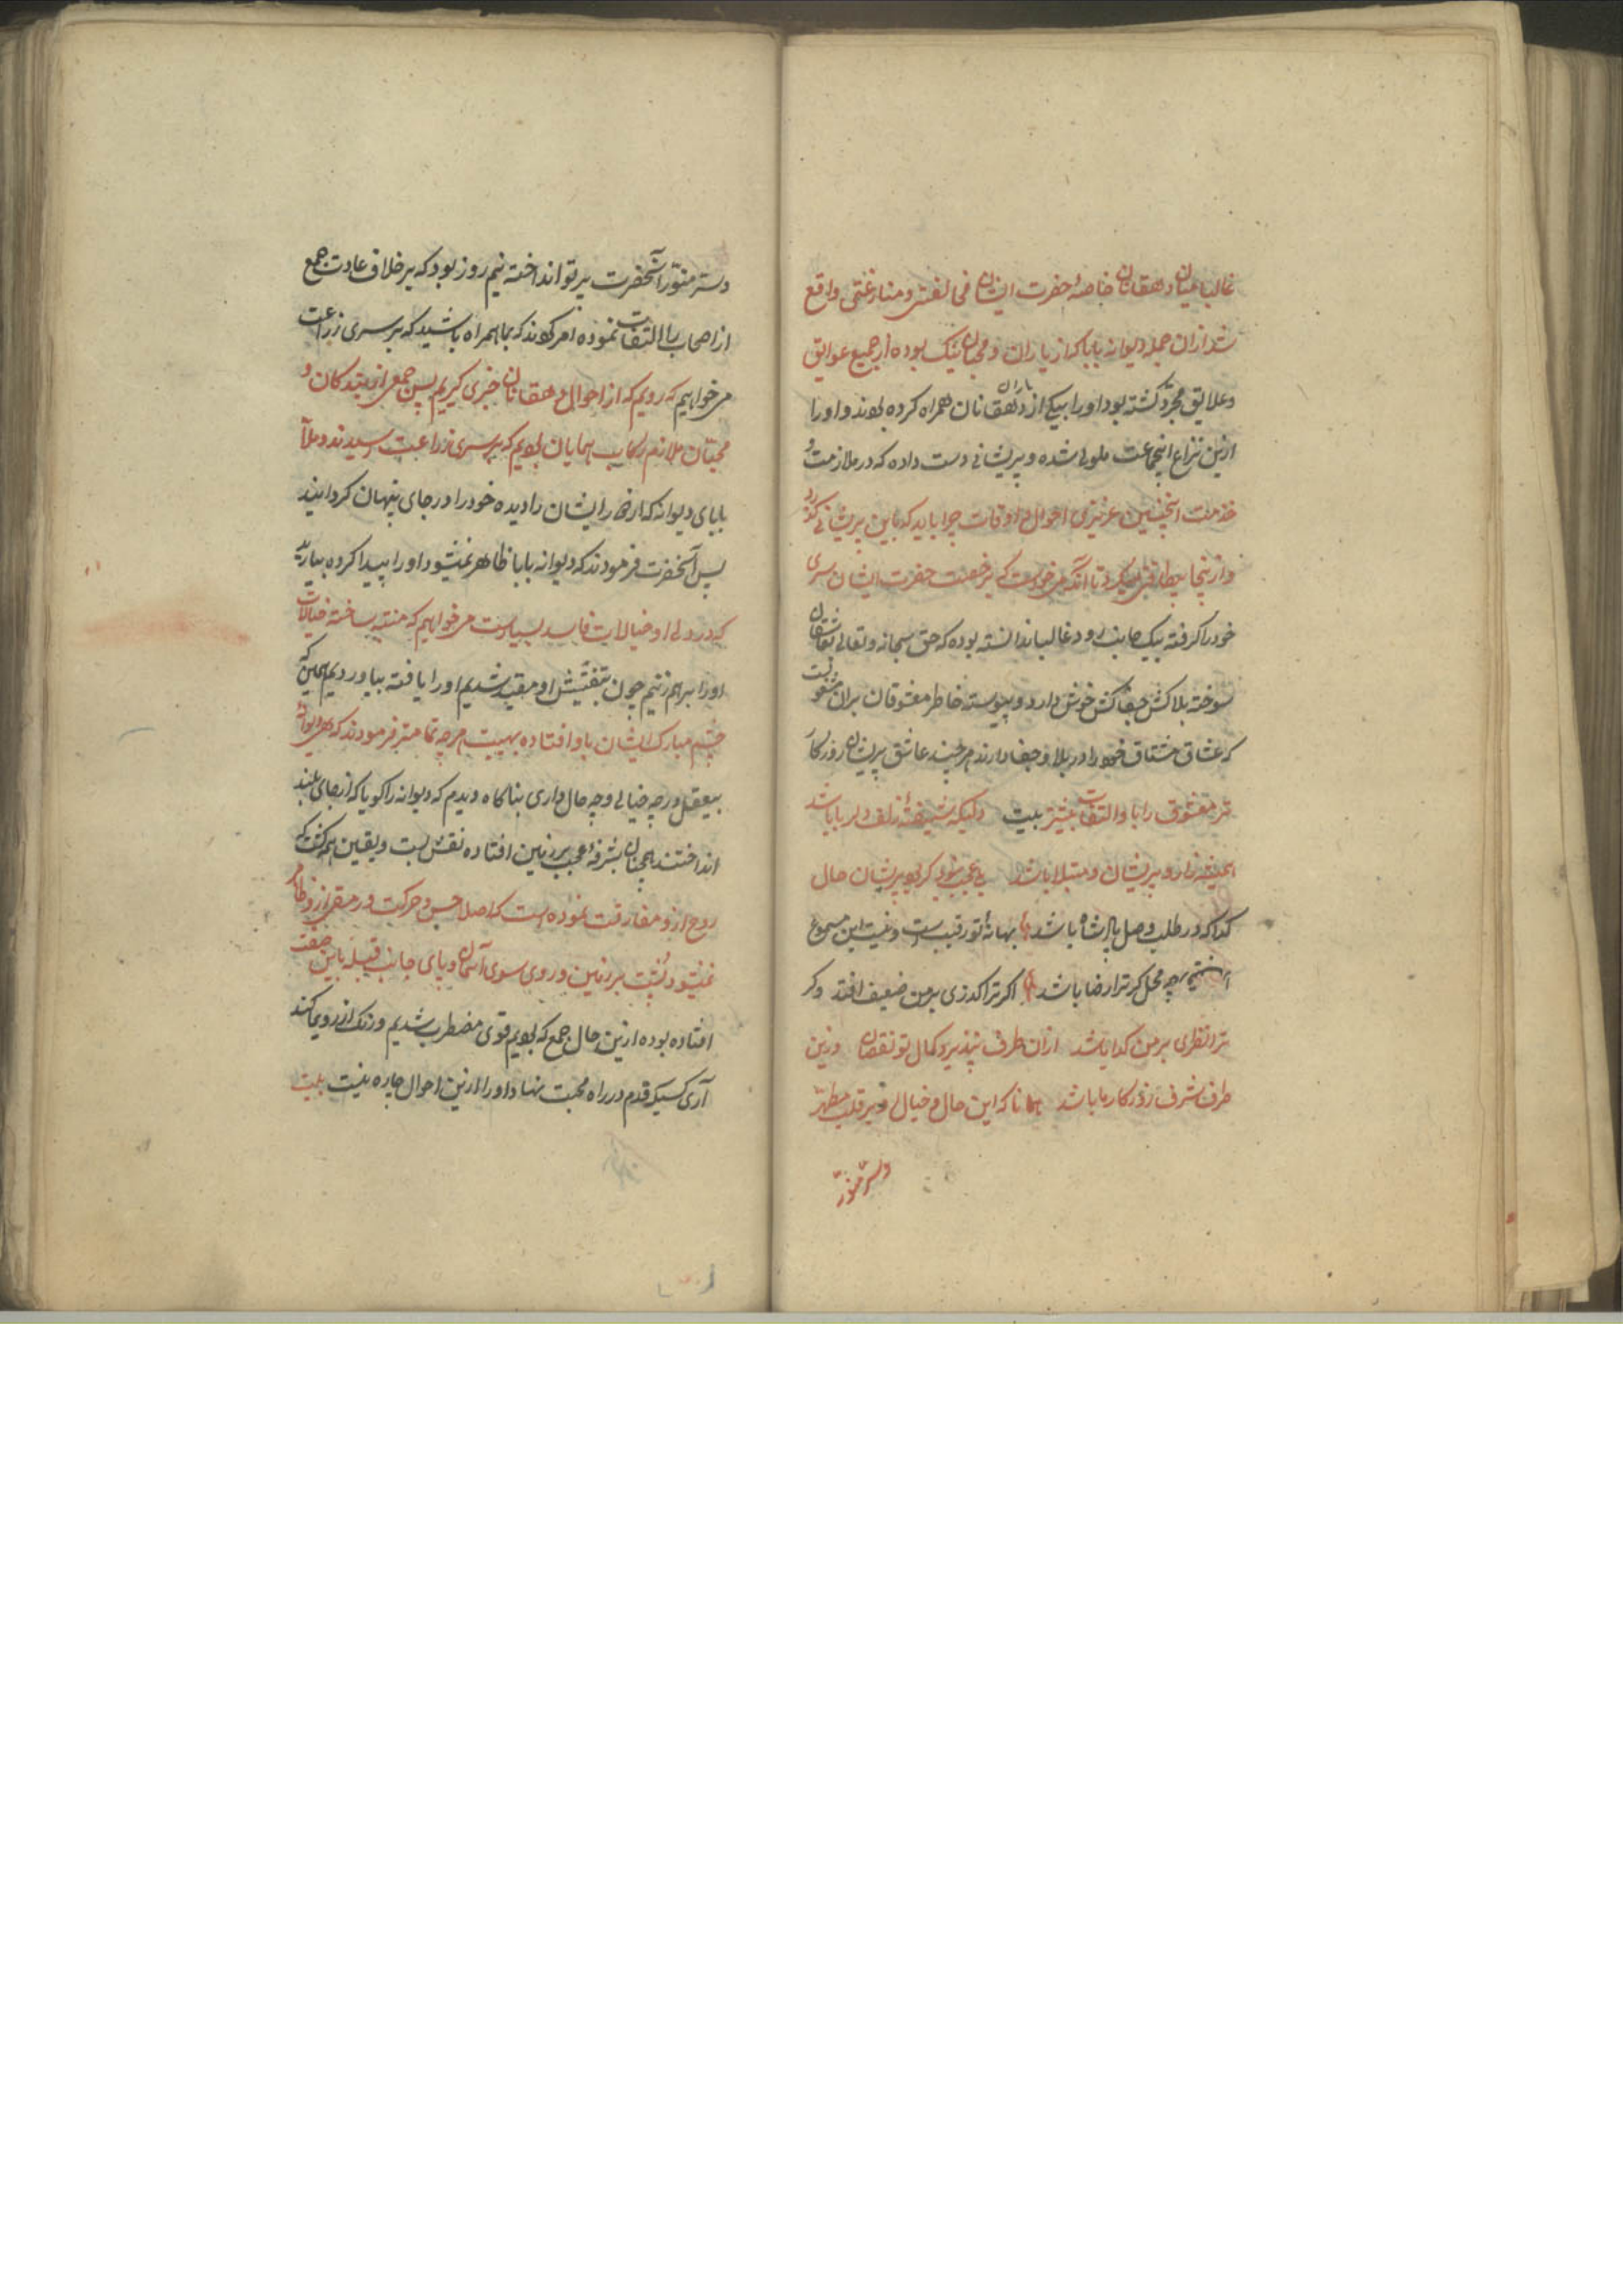 غالبا میان دهقانان خاصهٔ حضرت ایشان فی الفتی و منازعتی واقع
شد ازان جمله دیوانه بابا که از یاران و محبان نیک بوده از جمیع عوایق
و علایق مجرد کشته بود او را بیکی از یاران دهقانان همراه کرده بودند و او را
ازین نزاع انجماعت ملولی شده و پریشانی دست داده که در ملازمت و
خدمت انچنین عزیزی احوال و اوقات چرا باید که باین پریشانی کذرد
و ازینجا بیطاقتی میکرد تا آنکه می خواست که بی رخصت حضرت ایشان سری
خود را کرفته بیک جانب رود غالبا ندانسته بوده که حق سبحانه و تعالی عاشقان
سوخته بلاکش جفاکش خوش دارد و پیوسته خاطر معشوقان بران
که عشاق مشتاق خود را در بلا و جفا دارند هرچند عاشق پریشان روزکار
تر معشوق را با و التفات بیشتر بیت دلیکه شیفتهٔ زلف دلربا باشد
همیشه زار و پریشان و مبتلا باشد عجب نبود کر بود پریشان حال
کدا که در طلب وصل پادشاه باشد بهانهٔ تو رقیب است و نیست این مسموع
محل کر ترا رضا باشد اکر ترا کذری بر من ضعیف افتد و کر
ترا نظری بر من کدا باشد ازان طرف نپذیرد کمال تو نقصان وزین
طرف شرف روزکار ما باشد همانا که این حال و خیال او بر قلب مطهر
و سر منور
و سر منور آنحضرت پرتو انداخته نیم روز بود که بر خلاف عادت جمع
از اصحاب را التفات نموده امر کردند که بما همراه باشید که بر سری زراعت
می خواهیم که رویم که از احوال دهقانان خبری کیریم پس جمعی از بندکان و
محبان ملازم رکاب همایان بودیم که بر سری زراعت رسیدند و ملا
بابای دیوانه که از دور ایشان را دیده خود را در جای پنهان کردانید
پس آنحضرت فرمودند که دیوانه بابا ظاهر نمیشود او را پیدا کرده بیارید
که در دل او خیالات فاسد بسیارست می خواهیم که متنبه ساخته خیالات
او را برهم زنیم چون بتفتیش او مقید شدیم او را یافته بیاوردیم همین که
چشم مبارک ایشان باو افتاده بهیبت هرچه تمامتر فرمودند که هی دیوانهٔ
بیعقل در چه خیالی و چه حال داری بناکاه دیدم که دیوانه را کویا که از جای بلند
انداختند همچنان بشرفهٔ عجب بر زمین افتاده نقش بست و یقین همه کشت که
روح ازو مفارقت نموده است که اصلا حس و حرکت و رمقی ازو ظاهر
نمیشود پشت بر زمین و روی سوی آسمان و پای جانب قبله باین صفت
افتاده بوده ازین حال جمع که بودیم قوی مضطرب شدیم و رنک از روی ما کند
آری کسیکه قدم در راه محبت نهاد او را ازین احوال چاره نیست بیت